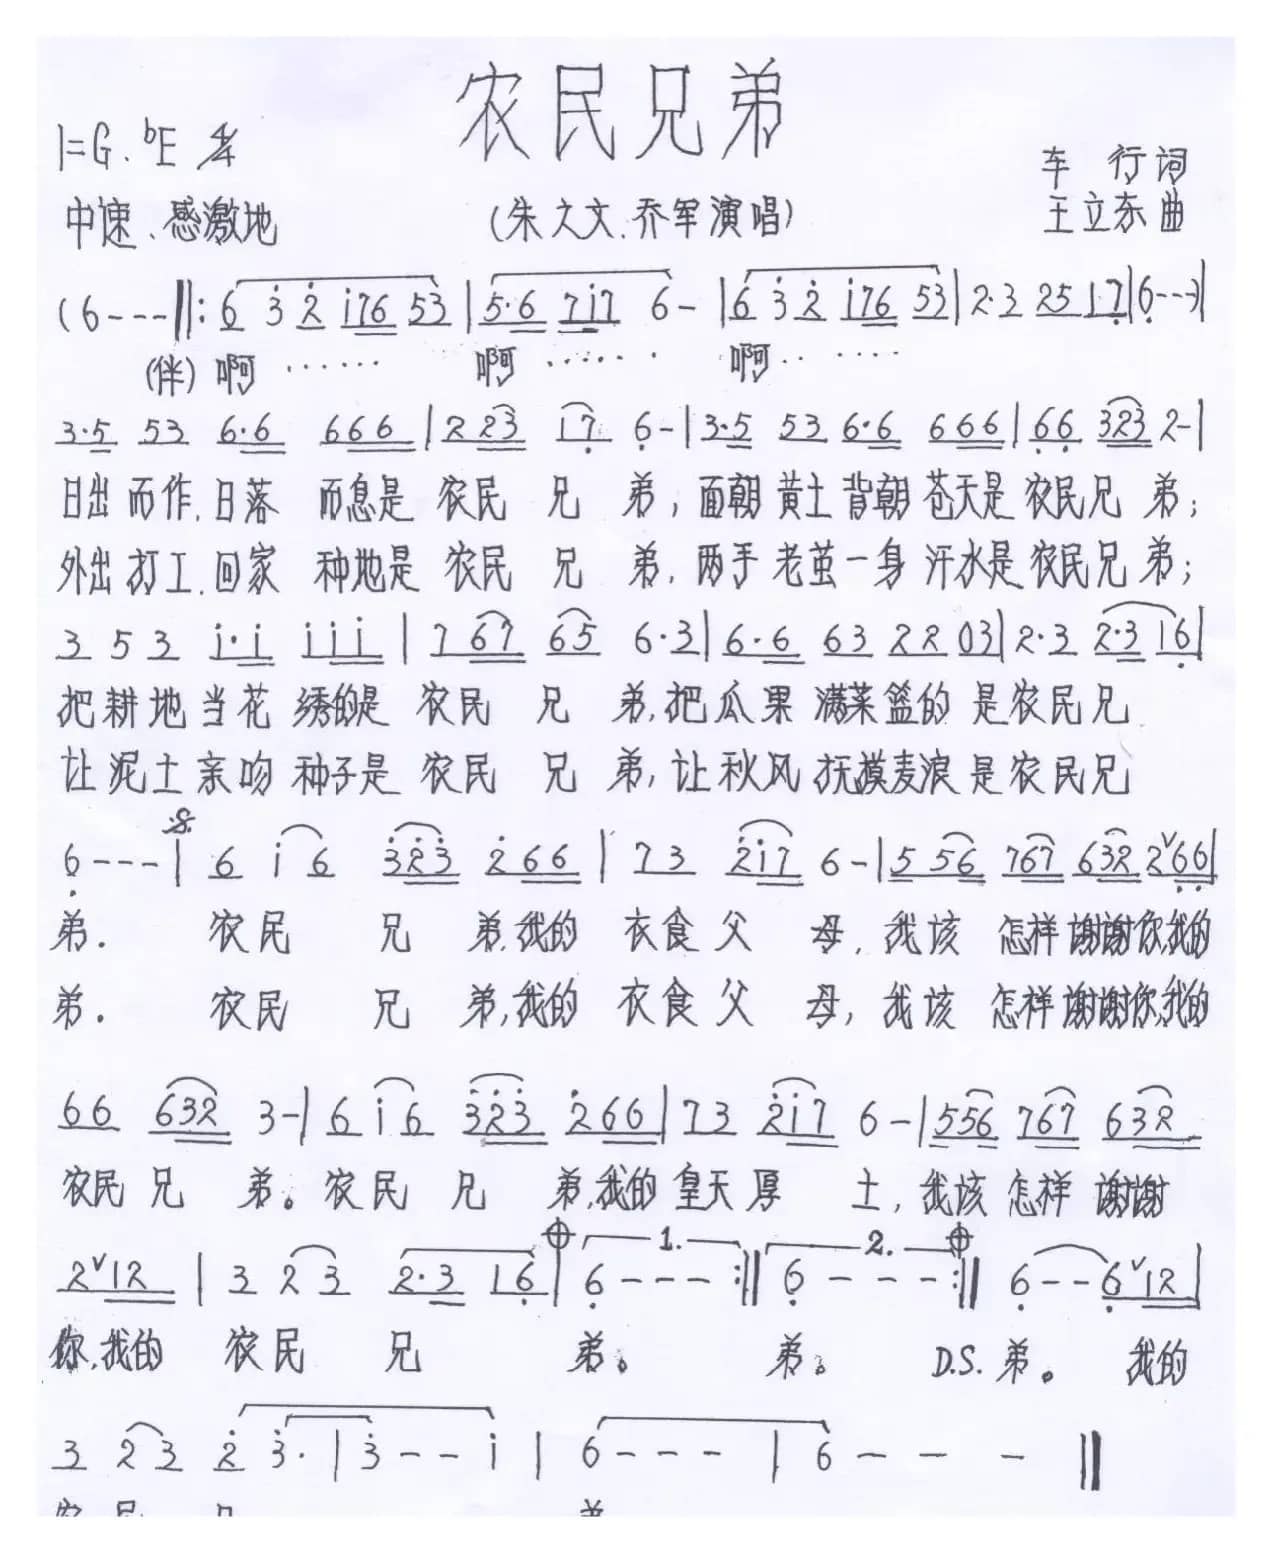 农民兄弟
1=G.♭E 4/4
车 行词
中速、感激地
(朱之文.乔军演唱)
王立东曲
(6---‖:6 3̇ 2̇ i76 53|5·6 7i7 6-|6 3̇ 2̇ i76 53|2·3 25 17̣|6̣---)|
(伴)啊…… 啊…… 啊……
3·5 53 6·6 666|2 23 17̣ 6̣-|3·5 53 6·6 666|6̣6̣ 323 2-|
日出而作.日落 而息是 农民 兄 弟;面朝黄土背朝苍天是农民兄 弟;
外出打工.回家 种地是 农民 兄 弟,两手老茧一身汗水是农民兄弟;
3 5 3 i·i iii|7 67 65 6·3|6·6 63 22 03|2·3 2·3 16̣|
把耕地当花 绣的是 农民 兄 弟,把瓜果 满菜篮的 是农民兄
让泥土亲吻 种子是 农民 兄 弟,让秋风 抚摸麦浪是农民兄
6̣---|6 i 6 3̇2̇3̇ 2̇66|73 2̇i7 6-|5 56 767 632 2ˇ6̣6̣|
弟. 农民 兄 弟,我的 衣食父 母,我该 怎样谢谢你,我的
弟. 农民 兄 弟,我的 衣食父 母,我该 怎样谢谢你,我的
66 632 3-|6 i 6 3̇2̇3̇ 2̇66|73 2̇i7 6-|556 767 632
农民兄 弟。农民 兄 弟,我的皇天厚 土,我该怎样 谢谢
2ˇ12|3 2 3 2·3 16̣|1. 6̣---:‖2. 6̣---:‖6̣--6̣ˇ12|
你,我的 农民 兄 弟。 弟。 D.S.弟。 我的
3 2 3 2̇ 3̇·|3̇--i|6---|6---‖
农 民 兄 弟